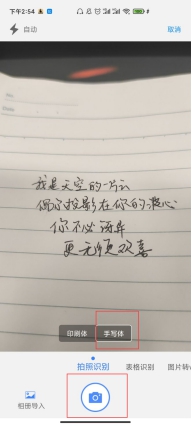 下午2:54
自动
取消
我是天空的一片云
偶尔投影在你的波心
你不必讶异
更无须欢喜
印刷体 手写体
拍照识别 表格识别 图片转
相册导入